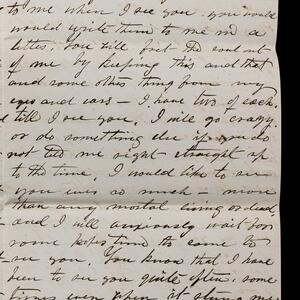 to me when I see you. you would
would write them to me in a
letter. You will get the want out
of me by keeping this and that
and some other thing from my
eyes and ears — I have two of each.
till I see you. I will go crazy
or do something else if you do
not tell me right straight up
to the time. I would like to see
you ever so much — more
than any mortal living or dead,
and I will anxiously wait for
some time to come to
see you. You know that I have
been to see you quite often, some
times even when it